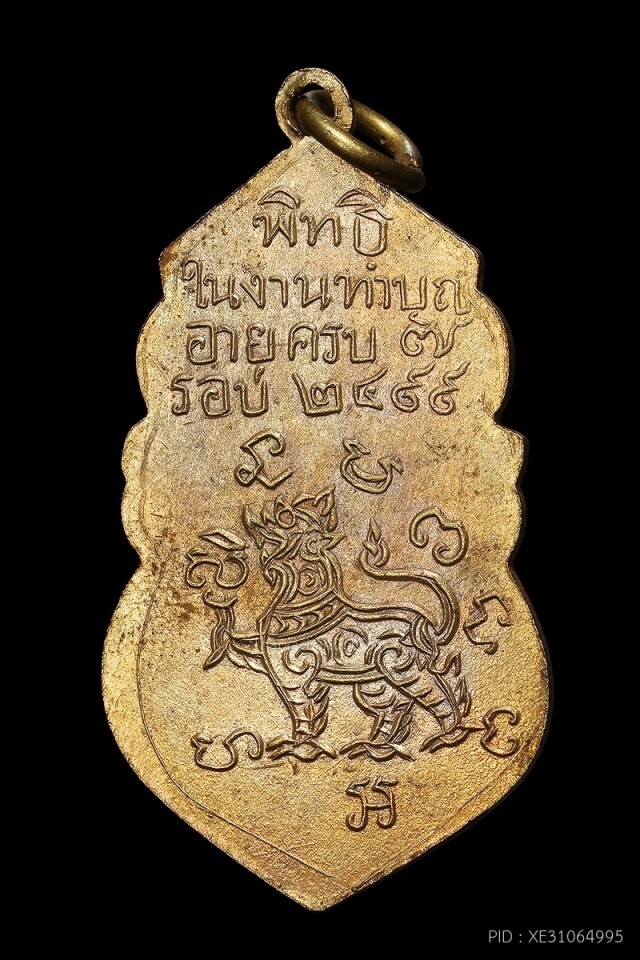 พิทธิ
ในงานทำบุญ
อายุครบ ๗
รอบ ๒๔๙๙
PID : XE31064995